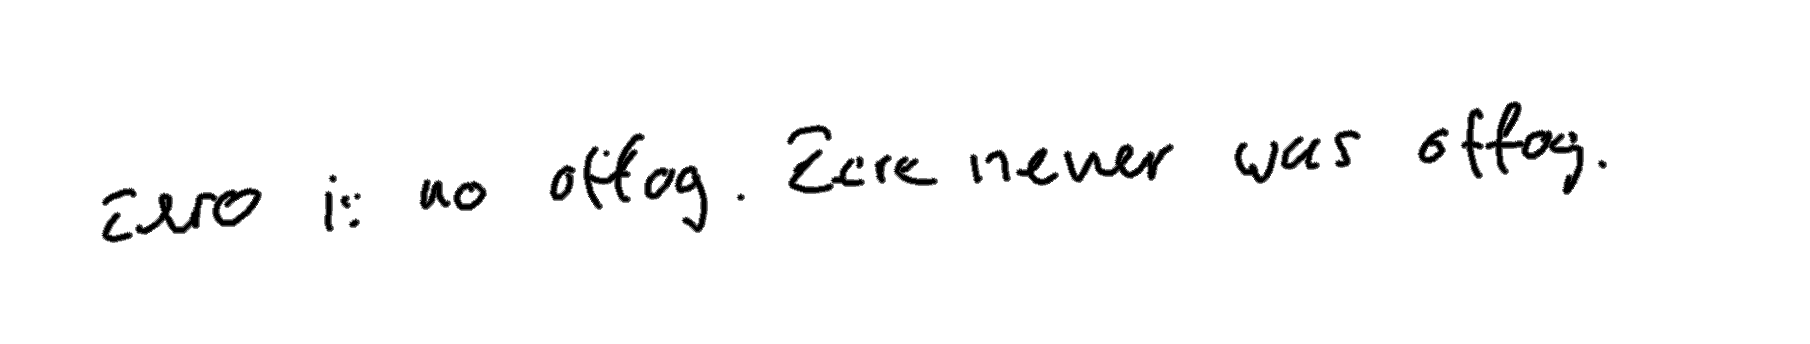 Zero is no offog. Zero never was offog.